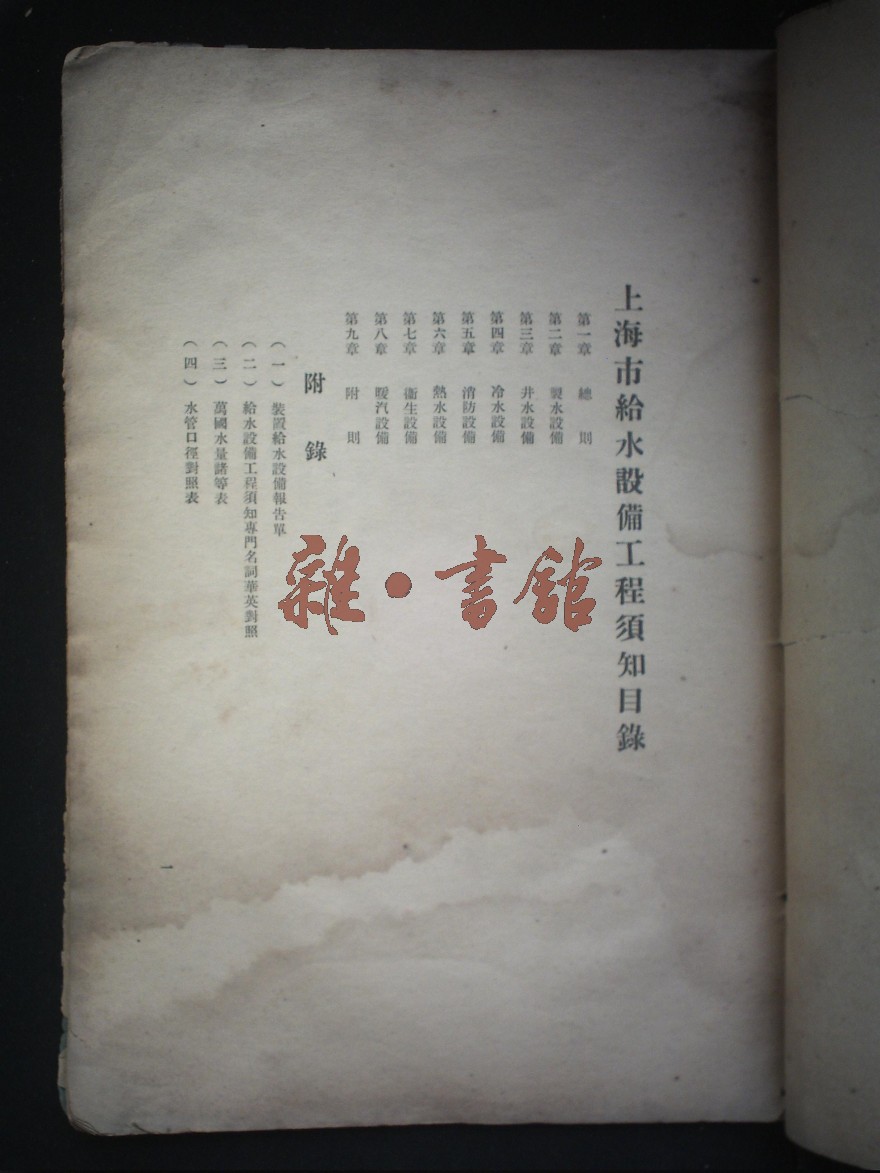 上海市給水設備工程須知目錄
第一章 總則
第二章 製水設備
第三章 井水設備
第四章 冷水設備
第五章 消防設備
第六章 熱水設備
第七章 衞生設備
第八章 暖汽設備
第九章 附則
附錄
(一) 裝置給水設備報告單
(二) 給水設備工程須知專門名詞華英對照
(三) 萬國水量諸等表
(四) 水管口徑對照表
雜·書館